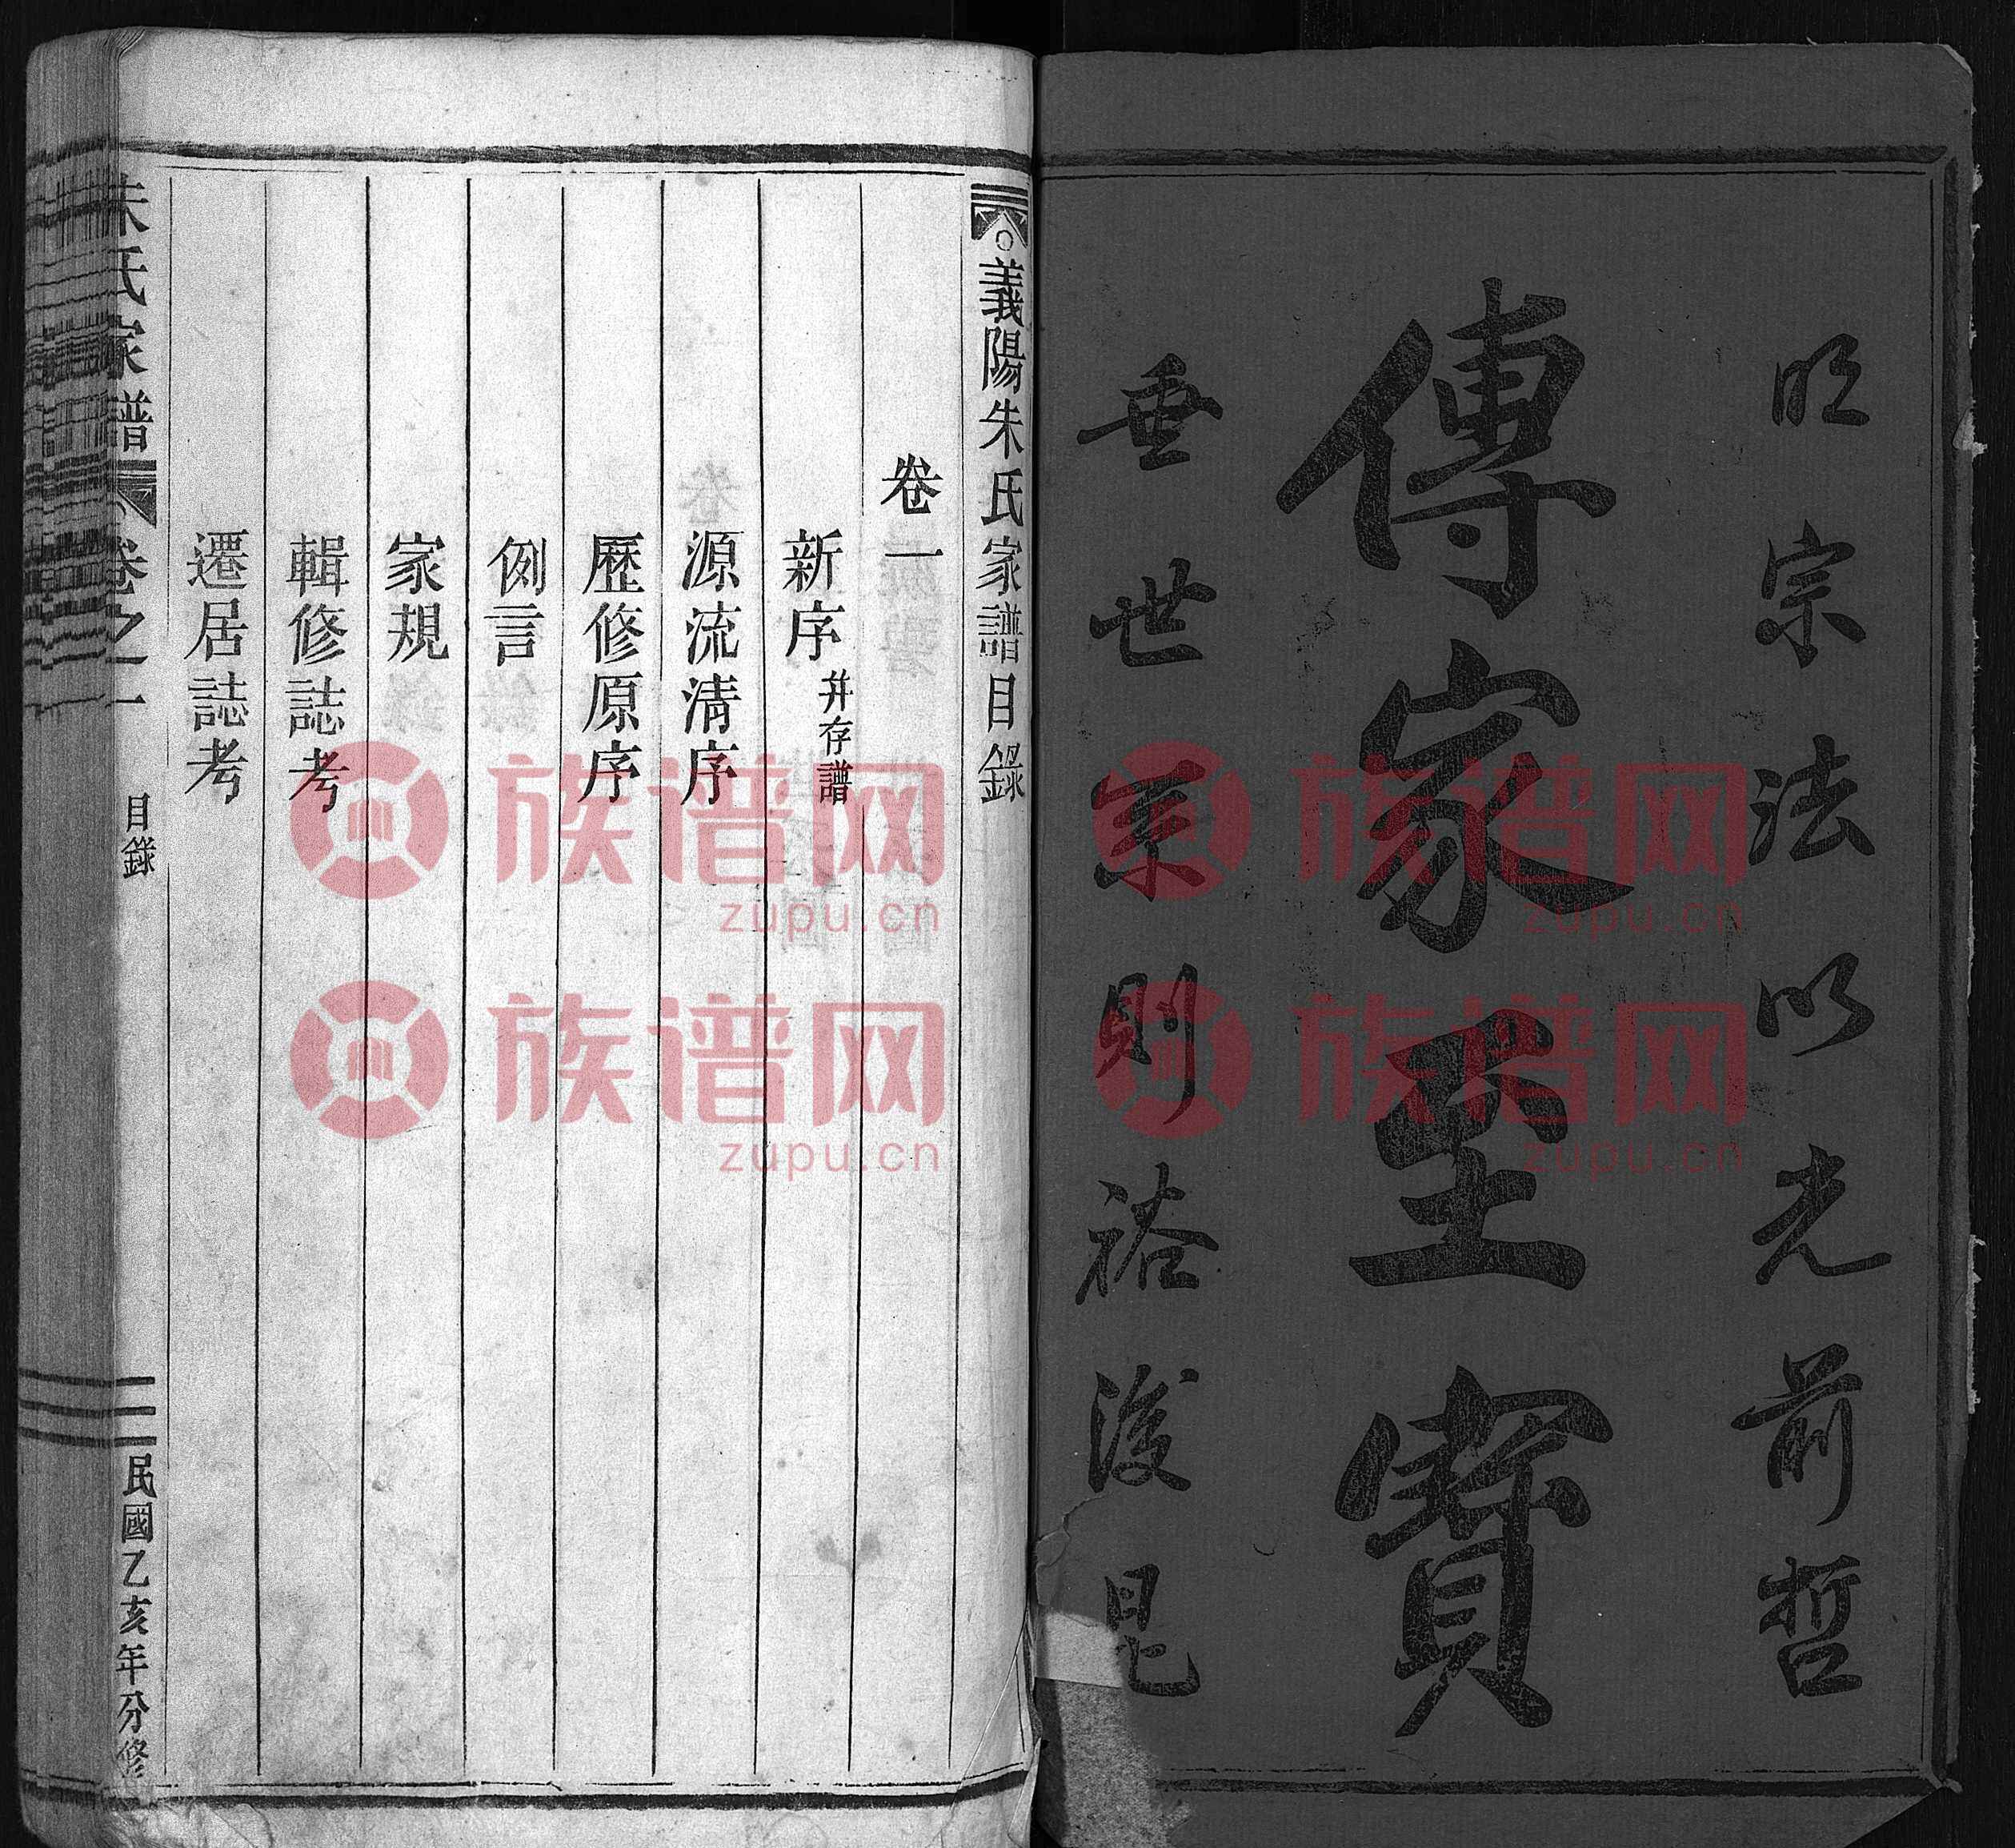 明宗法以光前哲
傳家至寶
垂世系則裕後昆
義陽朱氏家譜目錄
卷一
新序 并存譜
源流清序
歷修原序
例言
家規
輯修誌考
遷居誌考
朱氏家譜 卷之一 目錄 民國乙亥年分修
族谱网 zupu.cn
族谱网 zupu.cn
族谱网 zupu.cn
族谱网 zupu.cn